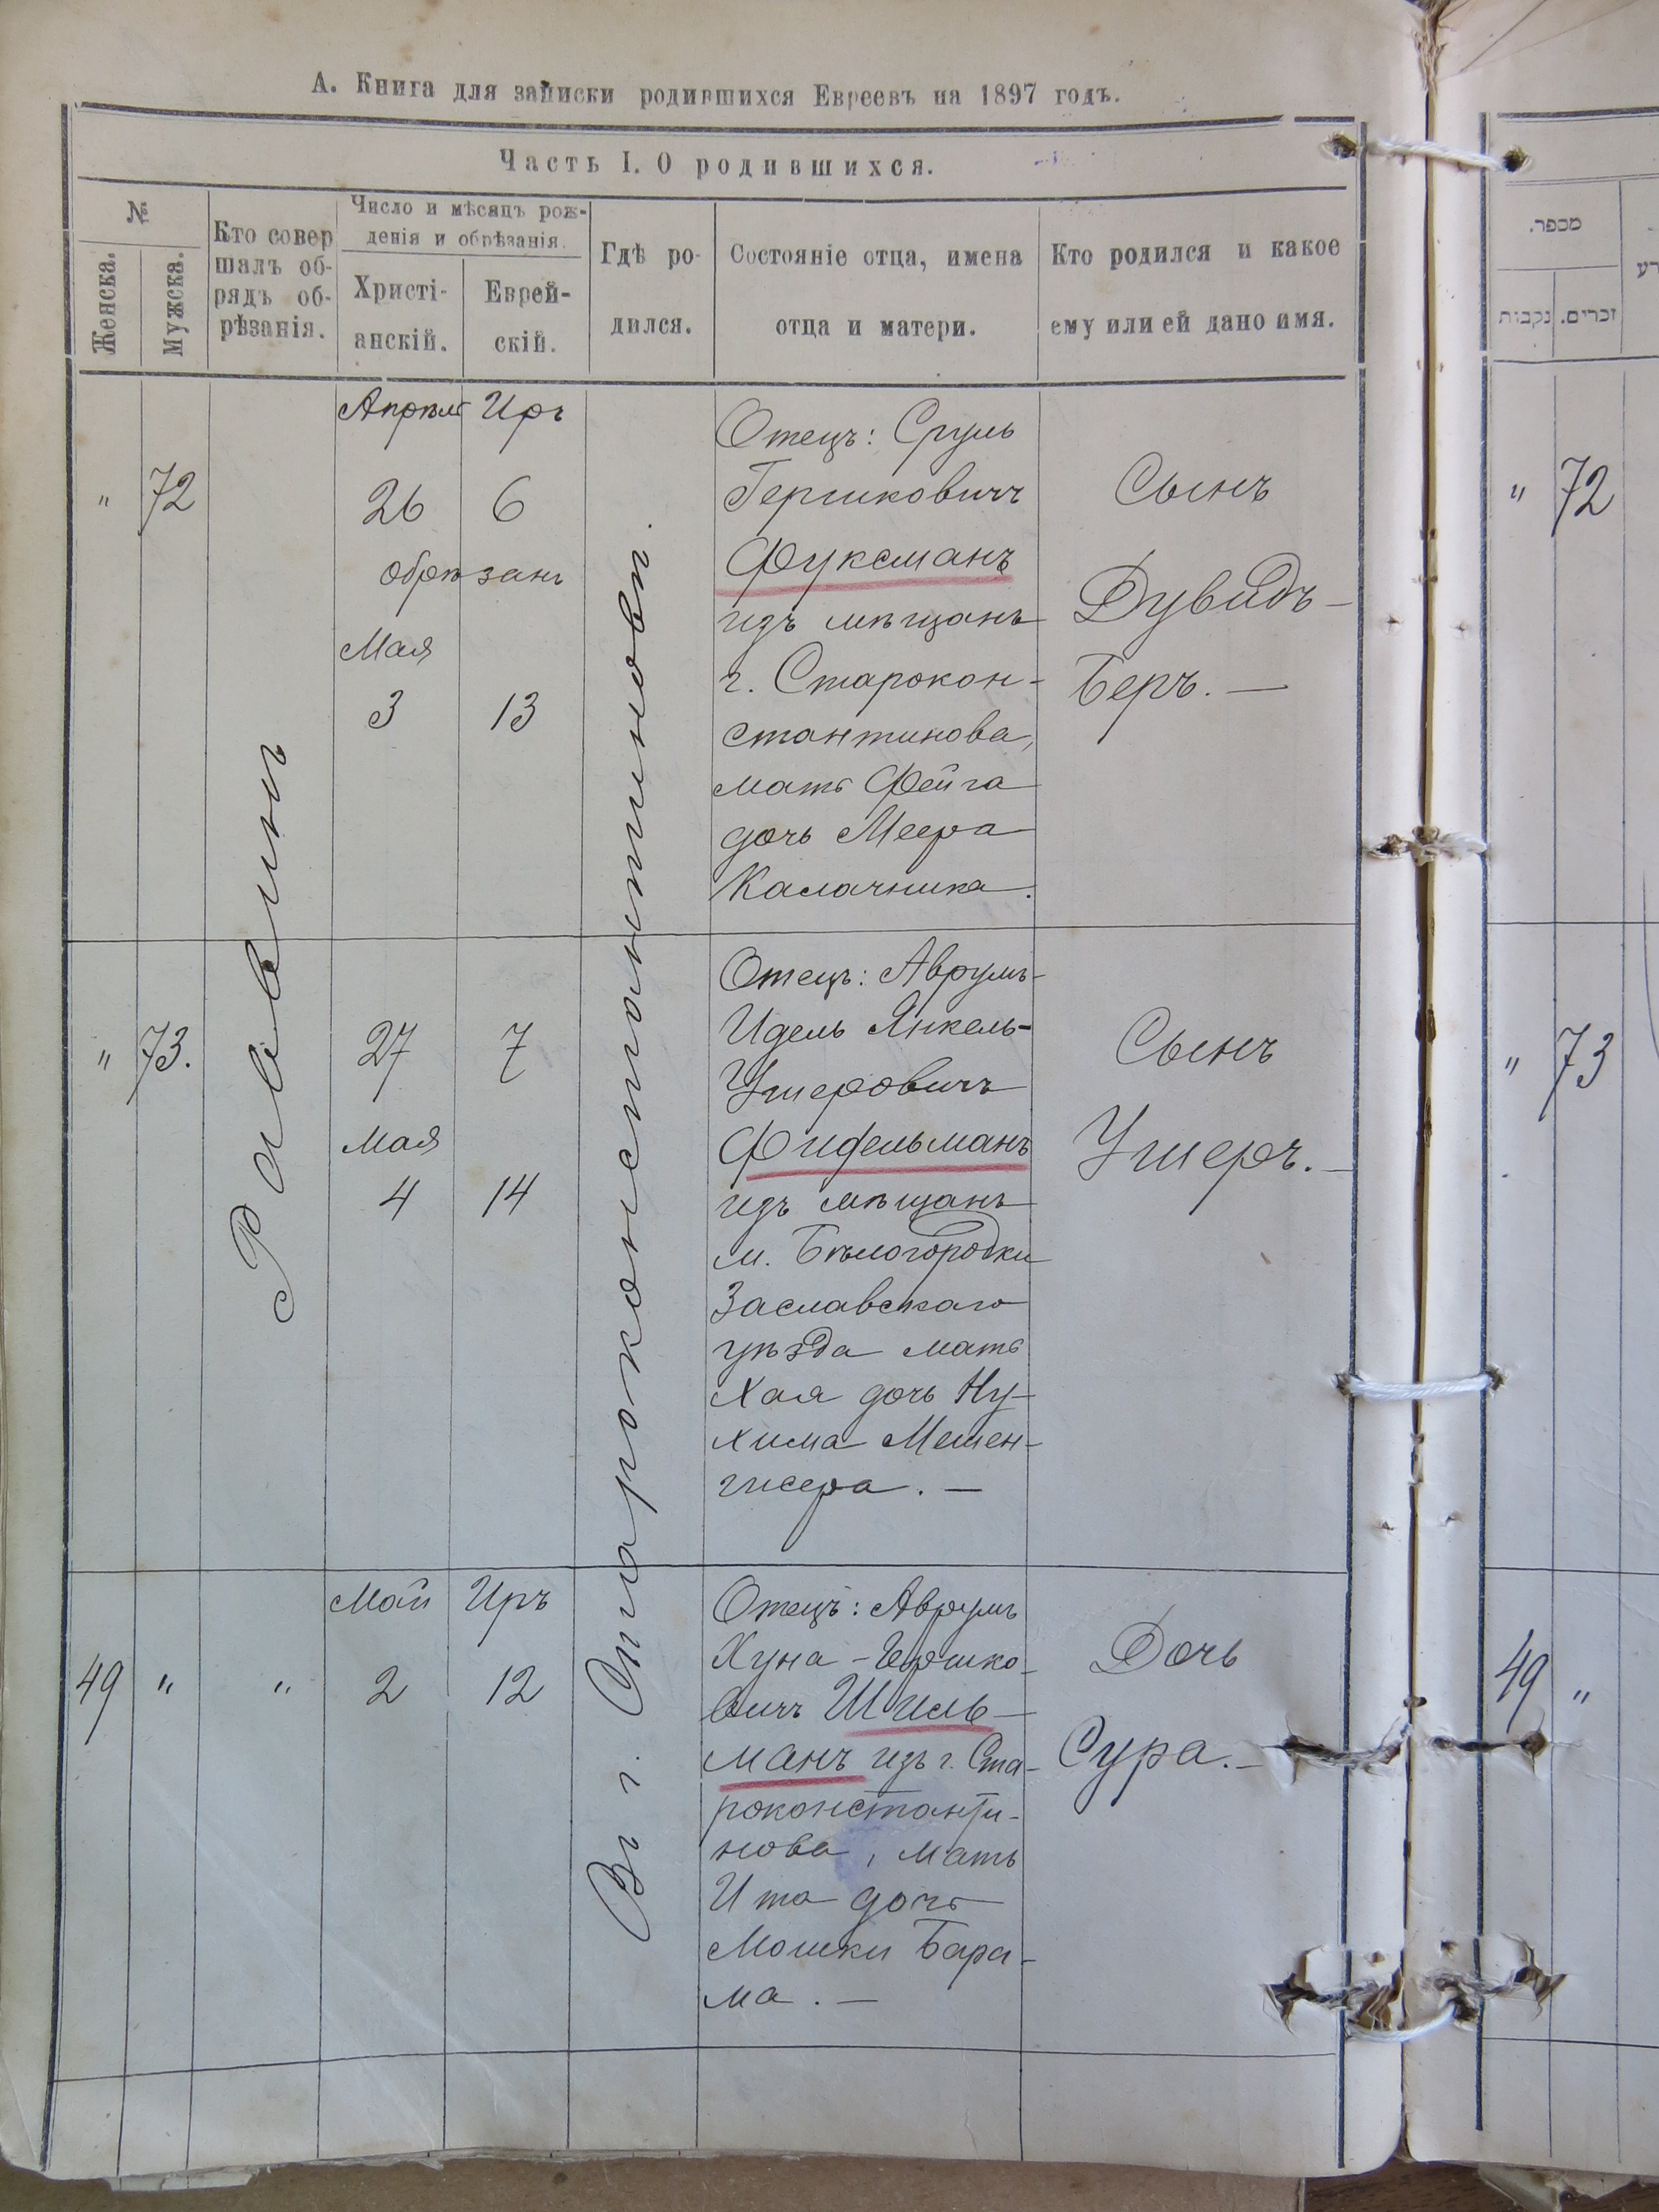 А. Книга для записки родившихся Евреевъ на 1897 годъ.
Часть I. О родившихся.
№
Женска.
Мужска.
Кто совер
шалъ об-
рядъ об-
рѣзанія.
Число и мѣсяцъ рож-
денія и обрѣзанія.
Христі-
анскій.
Еврей-
скій.
Гдѣ ро-
дился.
Состояніе отца, имена
отца и матери.
Кто родился и какое
ему или ей дано имя.
מספר.
נקבות
זכרים.
Раввинъ
Въ г. Староконстантиновѣ.
" 72
Апрѣль Иръ
26 6
обрѣзанъ
Мая
3 13
Отецъ: Сруль
Гершковичъ
Фуксманъ
изъ мѣщанъ
г. Старокон-
стантинова,
мать Фейга
дочь Меера
Калачника.
Сынъ
Дувидъ-
Беръ. —
" 72
" 73.
27 7
Мая
4 14
Отецъ: Аврумъ-
Идель Янкель-
Ушеровичъ
Фидельманъ
изъ мѣщанъ
м. Бѣлогородки
Заславскаго
уѣзда мать
Хая дочь Ну-
хима Мешен-
гисера. —
Сынъ
Ушеръ. —
" 73
49 " "
Май Иръ
2 12
Отецъ: Аврумъ
Хуна-Гершко-
вичъ Шиль-
манъ изъ г. Ста-
роконстанти-
нова, мать
Ита дочь
Мошки Бара-
ма. —
Дочь
Сура. —
49 "